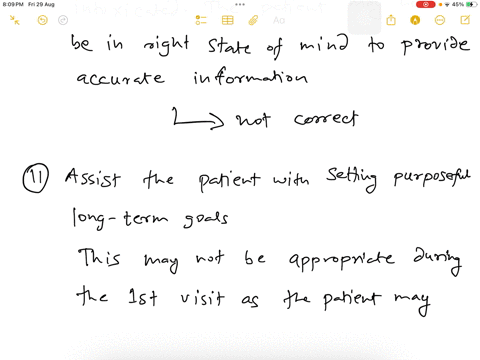 8:09 PM Fri 29 Aug
45%
Aa
be in right state of mind to provide
accurate information
not correct
11 Assist the patient with setting purposeful
long-term goals
This may not be appropriate during
the 1st visit as the patient may